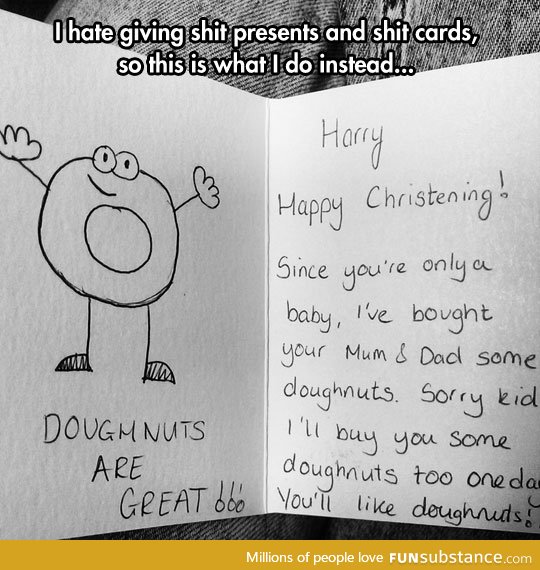 I hate giving shit presents and shit cards,
so this is what I do instead...
DOUGHNUTS
ARE
GREAT !!!
Harry
Happy Christening!
Since you're only a
baby, I've bought
your Mum & Dad some
doughnuts. Sorry kid
I'll buy you some
doughnuts too one day
You'll like doughnuts!
Millions of people love FUNsubstance.com